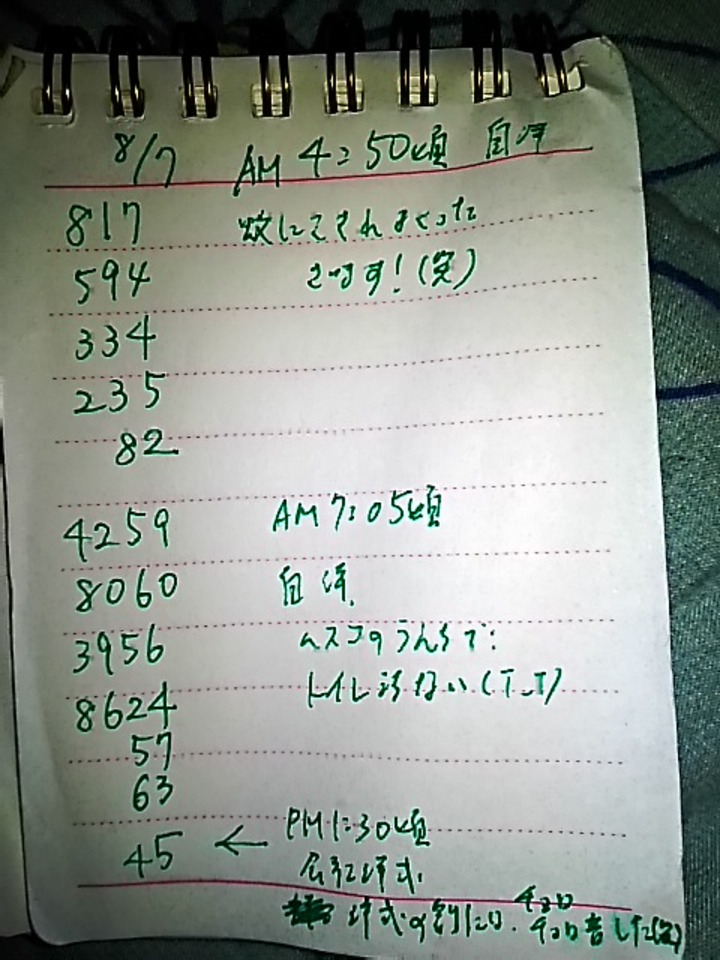 8/7 AM 4:50頃 自洋
817 蚊にさされまくった
594 さいます!(笑)
334
235
82
4259 AM7:05頃
8060 自洋
3956 ムスコのうんちで:
8624 トイレ ない(T_T)
57
63
45 ← PM1:30頃
洋式
洋式の 音した(笑)